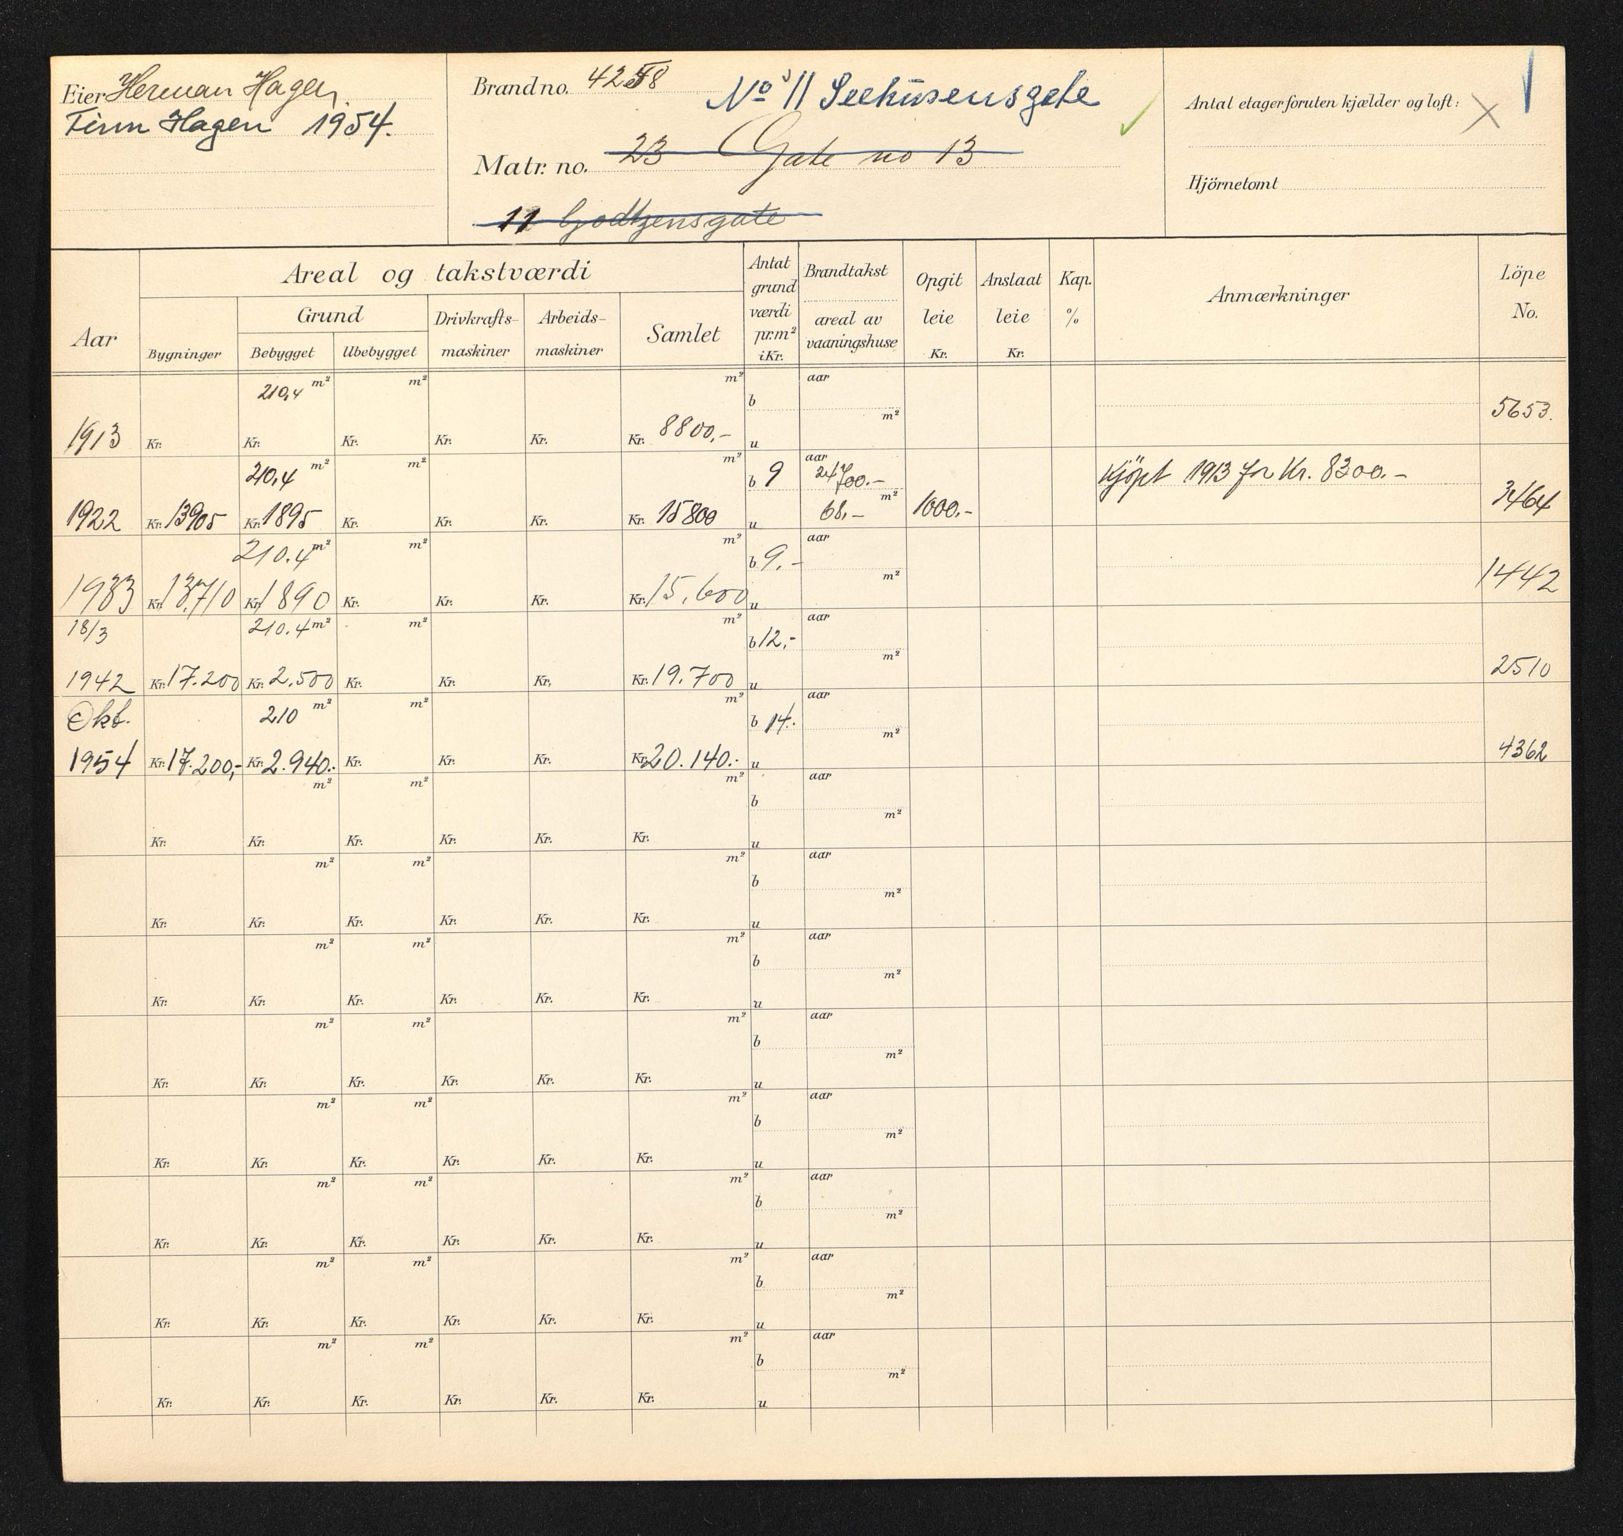 Eier Herman Hagen.
Finn Hagen 1954.
Brand no. 4258
No 11 Seehusensgate
Matr. no. 23 Gate no 13
11 Godtzensgate
Antal etager foruten kjælder og loft:
Hjörnetomt
Aar
Areal og takstværdi
Bygninger
Grund
Bebygget Ubebygget
Drivkrafts-
maskiner
Arbeids-
maskiner
Samlet
Antat
grund
værdi
pr. m²
i Kr.
Brandtakst
areal av
vaaningshuse
Opgit
leie
Kr.
Anslaat
leie
Kr.
Kap.
%
Anmærkninger
Löpe
No.
210,4 m² m² m² b aar
1913 Kr. Kr. Kr. Kr. Kr. Kr. 8800,- u m² 5653.
210,4 m² m² m² b 9 aar 24700.- Kjöpt 1913 for Kr. 8300.-
1922 Kr. 13905 Kr. 1895 Kr. Kr. Kr. Kr. 15800 u 68,- m² 1000.- 3464
210.4 m² m² m² b 9.- aar
1933 Kr. 13,710 Kr. 1890 Kr. Kr. Kr. Kr. 15.600 u m² 1442
18/3 210.4 m² m² m² b 12,- aar
1942 Kr. 17.200 Kr. 2.500 Kr. Kr. Kr. Kr. 19.700 u m² 2510
Okt. 210 m² m² m² b 14. aar
1954 Kr. 17.200,- Kr. 2.940.- Kr. Kr. Kr. Kr. 20.140.- u m² 4362
m² m² m² b aar
Kr. Kr. Kr. Kr. Kr. Kr. u m²
m² m² m² b aar
Kr. Kr. Kr. Kr. Kr. Kr. u m²
m² m² m² b aar
Kr. Kr. Kr. Kr. Kr. Kr. u m²
m² m² m² b aar
Kr. Kr. Kr. Kr. Kr. Kr. u m²
m² m² m² b aar
Kr. Kr. Kr. Kr. Kr. Kr. u m²
m² m² m² b aar
Kr. Kr. Kr. Kr. Kr. Kr. u m²
m² m² m² b aar
Kr. Kr. Kr. Kr. Kr. Kr. u m²
m² m² m² b aar
Kr. Kr. Kr. Kr. Kr. Kr. u m²